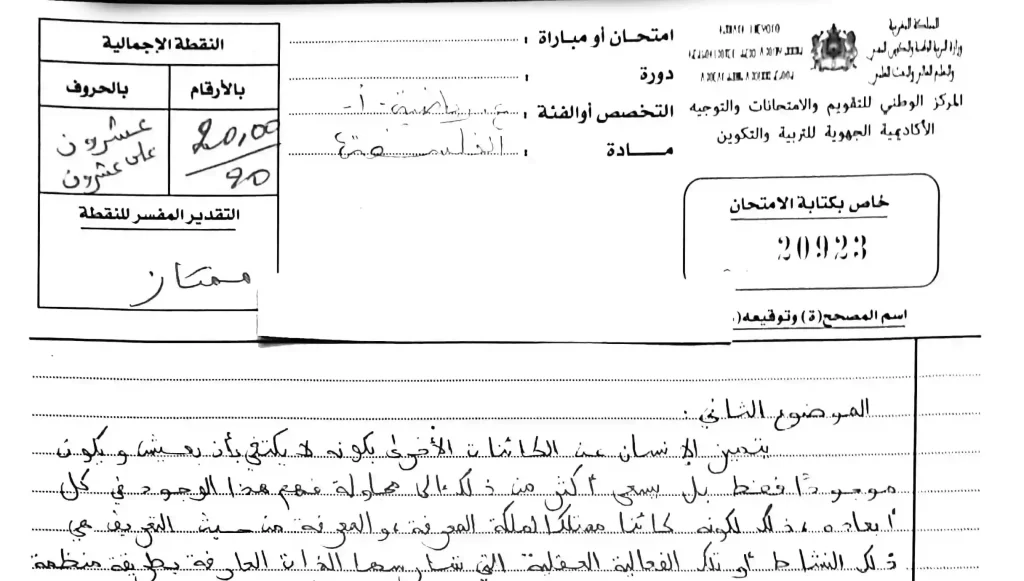 المملكة المغربية
وزارة التربية الوطنية والتكوين المهني
والتعليم العالي والبحث العلمي
المركز الوطني للتقويم والامتحانات والتوجيه
الأكاديمية الجهوية للتربية والتكوين
امتحان أو مباراة :
دورة :
التخصص أو الفئة : ع. رياضية - أ -
مادة : الفلسفة
النقطة الإجمالية
بالأرقام بالحروف
20,00/20 عشرون على عشرون
التقدير المفسر للنقطة
ممتاز
خاص بكتابة الامتحان
20923
اسم المصحح(ة) وتوقيعه(
الموضوع الثاني :
يتميز الإنسان عن الكائنات الأخرى بكونه لا يكتفي بأن يعيش ويكون
موجودا فقط بل يسعى أكثر من ذلك إلى محاولة فهم هذا الوجود في كل
أبعاده، ذلك لكونه كائنا ممتلكا لملكة المعرفة، والمعرفة من حيث التعريف هي
ذلك النشاط أو تلك الفعالية العقلية التي تمارسها الذات العارفة بطريقة منظمة